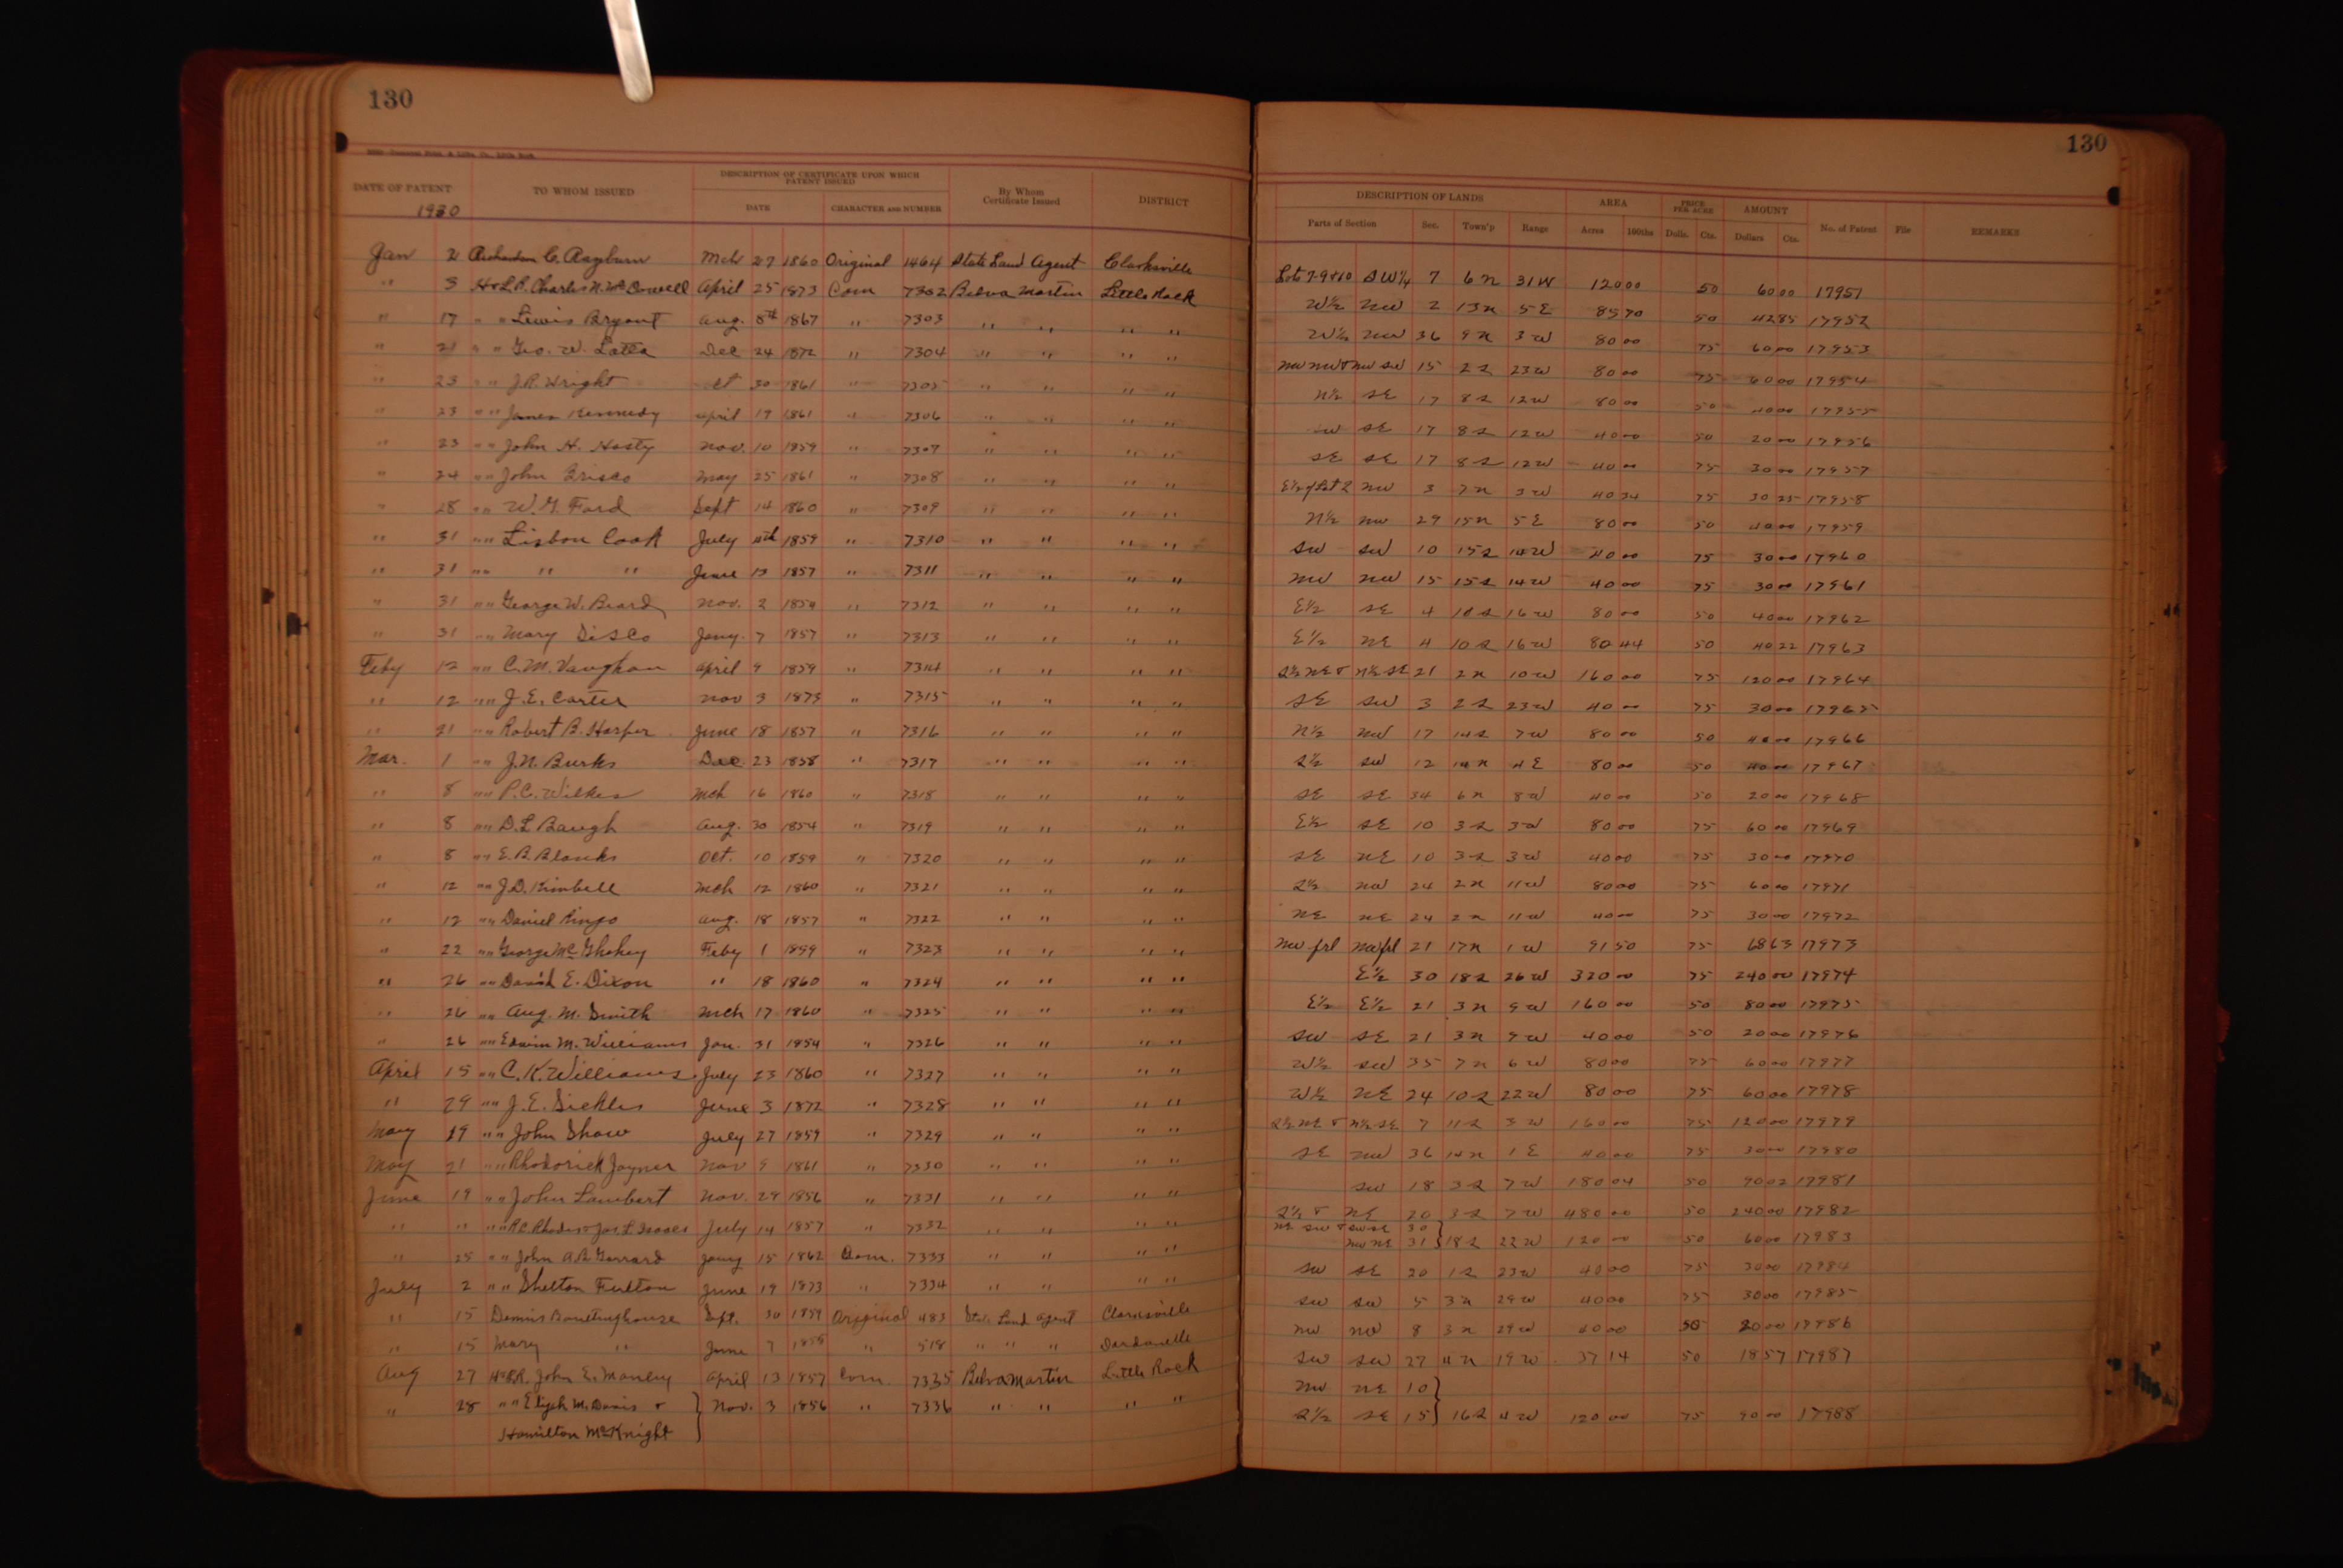 130
DATE OF PATENT
TO WHOM ISSUED
DESCRIPTION OF CERTIFICATE UPON WHICH PATENT ISSUED
DATE
CHARACTER AND NUMBER
By Whom Certificate Issued
DISTRICT
1930
Jan 2 Richardson C. Rayburn Mch 27 1860 Original 1464 State Land Agent Clarksville
" 3 H&L.R. Charles N. McDowell April 25 1873 Com 7302 Belva Martin Little Rock
" 17 " " Lewis Bryant Aug. 8th 1867 " 7303 " " " "
" 21 " " Geo. W. Latta Dec 24 1872 " 7304 " " " "
" 23 " " J.R. Wright Oct 30 1861 " 7305 " " " "
" 23 " " James Kennedy April 19 1861 " 7306 " " " "
" 23 " " John H. Hasty Nov. 10 1859 " 7307 " " " "
" 24 " " John Brisco May 25 1861 " 7308 " " " "
" 28 " " W.G. Ford Sept 14 1860 " 7309 " " " "
" 31 " " Lisbon Cook July 11th 1859 " 7310 " " " "
" 31 " " " " June 13 1857 " 7311 " " " "
" 31 " " George W. Beard Nov. 2 1859 " 7312 " " " "
" 31 " " Mary Sisco Jany. 7 1857 " 7313 " " " "
Feby 12 " " C.M. Vaughan April 9 1859 " 7314 " " " "
" 12 " " J.E. Carter Nov 3 1873 " 7315 " " " "
" 21 " " Robert B. Harper June 18 1857 " 7316 " " " "
Mar. 1 " " J.N. Burks Dec 23 1858 " 7317 " " " "
" 8 " " P.C. Wilkes Mch 16 1860 " 7318 " " " "
" 8 " " D.L Baugh Aug. 30 1854 " 7319 " " " "
" 8 " " E.B. Blanks Oct. 10 1859 " 7320 " " " "
" 12 " " J.D. Kimbell Mch 12 1860 " 7321 " " " "
" 12 " " Daniel Ringo Aug. 18 1857 " 7322 " " " "
" 22 " " George McGhehey Feby 1 1899 " 7323 " " " "
" 26 " " David E. Dixon " 18 1860 " 7324 " " " "
" 26 " " Aug. M. Smith Mch 17 1860 " 7325 " " " "
" 26 " " Edwin M. Williams Jan. 31 1854 " 7326 " " " "
April 15 " " C.K. Williams July 23 1860 " 7327 " " " "
" 29 " " J.E. Sickles June 3 1872 " 7328 " " " "
May 19 " " John Shaw July 27 1859 " 7329 " " " "
May 21 " " Rhoderick Joyner Nov 9 1861 " 7330 " " " "
June 19 " " John Lambert Nov. 29 1856 " 7331 " " " "
" " " " R.C. Rhodes & Jos. L. July 14 1857 " 7332 " " " "
" 25 " " John A.R. Garrard Jany 15 1862 Com. 7333 " " " "
July 2 " " Shelton Fulton June 19 1873 " 7334 " " " "
" 15 Dennis Sept. 30 1859 Original 483 State Land Agent Clarksville
" 15 Mary " June 7 1855 " 518 " " " Dardanelle
Aug 27 H&L.R. John E. Manley April 13 1857 Com. 7335 Belva Martin Little Rock
" 28 " " Elijah M. Davis & } Nov. 3 1856 " 7336 " " " "
Hamilton McKnight
130
DESCRIPTION OF LANDS
AREA
PRICE PER ACRE
AMOUNT
Parts of Section
Sec.
Town'p
Range
Acres
100ths
Dolls.
Cts.
Dollars
Cts.
No. of Patent
File
REMARKS
Lots 7-9&10 SW¼ 7 6N 31W 120 00 50 60 00 17951
W½ NW 2 13N 5E 85 70 50 42 85 17952
W½ NW 36 9N 3W 80 00 75 60 00 17953
NW NW & NW SW 15 2S 23W 80 00 75 60 00 17954
N½ SE 17 8S 12W 80 00 50 40 00 17955
SW SE 17 8S 12W 40 00 50 20 00 17956
SE SE 17 8S 12W 40 00 75 30 00 17957
E½ of Lot 2 NW 3 7N 3W 40 34 75 30 25 17958
N½ NW 29 15N 5E 80 00 50 40 00 17959
SW SW 10 15S 14W 40 00 75 30 00 17960
NW NW 15 15S 14W 40 00 75 30 00 17961
E½ SE 4 10S 16W 80 00 50 40 00 17962
E½ NE 4 10S 16W 80 44 50 40 22 17963
S½ NE & N½ SE 21 2N 10W 160 00 75 120 00 17964
SE SW 3 2S 23W 40 00 75 30 00 17965
N½ NW 17 14S 7W 80 00 50 40 00 17966
S½ SW 12 14N 4E 80 00 50 40 00 17967
SE SE 34 6N 8W 40 00 50 20 00 17968
E½ SE 10 3S 3W 80 00 75 60 00 17969
SE NE 10 3S 3W 40 00 75 30 00 17970
S½ NW 24 2N 11W 80 00 75 60 00 17971
NE NE 24 2N 11W 40 00 75 30 00 17972
NW frl NW frl 21 17N 1W 91 50 75 68 63 17973
E½ 30 18S 26W 320 00 75 240 00 17974
E½ E½ 21 3N 9W 160 00 50 80 00 17975
SW SE 21 3N 9W 40 00 50 20 00 17976
W½ SW 35 7N 6W 80 00 75 60 00 17977
W½ NE 24 10S 22W 80 00 75 60 00 17978
S½ NE & N½ SE 7 11S 3W 160 00 75 120 00 17979
SE NW 36 14N 1E 40 00 75 30 00 17980
SW 18 3S 7W 180 04 50 90 02 17981
S½ & NE 20 3S 7W 480 00 50 240 00 17982
NE SW & SW SE 30 }
NW NE 31 } 18S 22W 120 00 50 60 00 17983
SW SE 20 1S 23W 40 00 75 30 00 17984
SW SW 5 3N 29W 40 00 75 30 00 17985
NW NW 8 3N 29W 40 00 50 20 00 17986
SW SW 27 4N 19W 37 14 50 18 57 17987
NW NE 10 }
S½ SE 15 } 16S 4W 120 00 75 90 00 17988